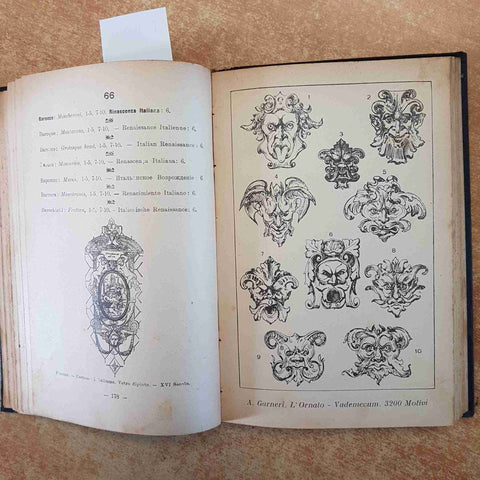 66
Barocco: Mascheroni, 1-5, 7-10. Rinascenza Italiana: 6.
Baroque: Mascarons, 1-5, 7-10. — Renaissance Italienne: 6.
Grotesque head, 1-5, 7-10. — Italian Renaissance: 6.
1-5, 7-10. — Italiana: 6.
1-5, 7-10. — Итальянское Возрождение: 6.
Barroco: 1-5, 7-10. — Renacimiento Italiano: 6.
Fratzen, 1-5, 7-10. — Italienische Renaissance: 6.
Vetro dipinto. — XVI Secolo.
— 178 —
1
2
3
4
5
6
7
8
9
10
A. Garneri. L'Ornato - Vademecum. 3200 Motivi